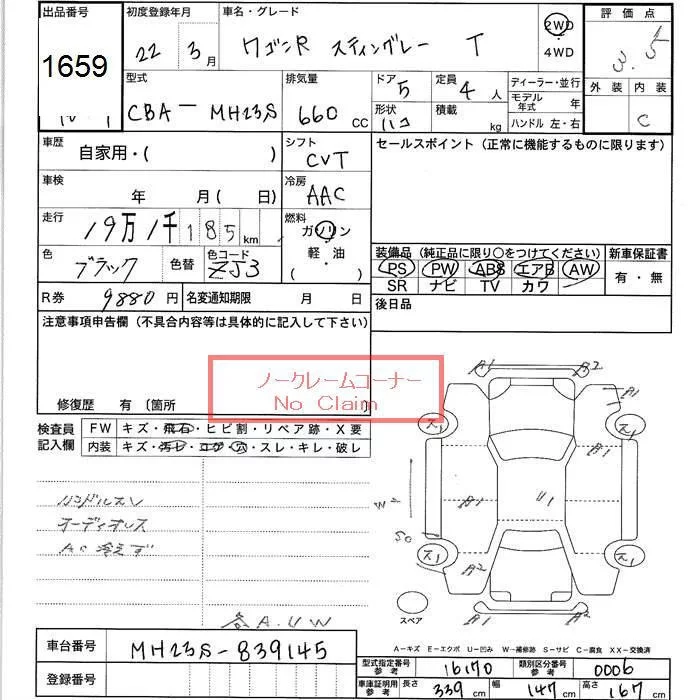 出品番号 初度登録年月 車名・グレード 評価点
1659 22年 3月 ワゴンR スティングレー T 2WD・4WD 3.5
型式 排気量 ドア 定員 ディーラー・並行 外装 内装
CBA－MH23S 660cc 5 4人 モデル年式 年 C
形状 ハコ 積載 kg ハンドル 左・右
車歴 自家用・( ) シフト CVT セールスポイント（正常に機能するものに限ります）
車検 年 月( 日) 冷房 AAC
走行 19万1千185km 燃料 ガソリン
軽・油
( ・ )
色 ブラック 色替 色コード ZJ3
装備品（純正品に限り○をつけてください） 新車保証書
PS PW ABS エアB AW 有・無
SR ナビ TV カワ
R券 9880円 名変通知期限 月 日 後日品
注意事項申告欄（不具合内容等は具体的に記入して下さい）
ノークレームコーナー
No Claim
修復歴 有 〔箇所
検査員記入欄 FW キズ・飛石・ヒビ割・リペア跡・X要
内装 キズ・汚レ・コゲ・穴・スレ・キレ・破レ
ハンドルスレ
オーディオレス
AC冷えず
各A.U.W
A1 A2
A1 B1
ス1 ス1
B1 B1 U1
ス1 ス1
A2 A2
B1 A2
スペア
A－キズ E－エクボ U－凹み W－補修跡 S－サビ C－腐食 XX－交換済
車台番号 MH23S-839145
型式指定番号 参考 16170 類別区分番号 参考 0006
登録番号 車庫証明用 参考 長さ 339cm 幅 147cm 高さ 167cm